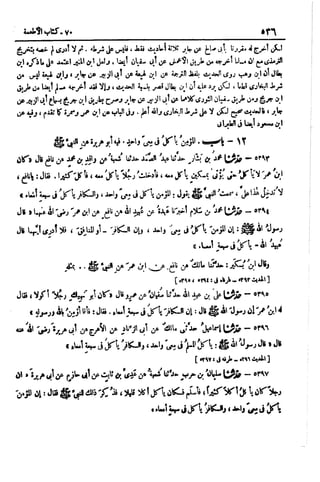 ٥٣٦ ٧٠ - كتاب الأطعمة
لكن أخرج له مقرونا بأبى صالح عن جابر ثلاثة أحاديث فقط، فليس على شرطه. ثم لا أدرى لم خصه بتخريج
الترمذى مع أن مسلما أخرجه من طريق الأعمش عن أبى سفيان أيضا. ولعل ابن المنير اعتمد على ما ذكره ابن
بطال أن ابن وهب روى الحديث بلفظ الترجمة عن ابن لهيعة عن أبى الزبير عن جابر، وابن لهيعة ليس من
شرط البخارى قطعا، لكن يرد عليه أن ابن بطال قصر بنسبة الحديث، وإلا فقد أخرجه مسلم أيضا من طريق
ابن جريج ومن طريق سفيان الثورى كلاهما عن أبى الزبير عن جابر وصرح بطريق ابن جريج بسماع أبى الزبير عن
جابر، فالحديث صحيح لكن لا على شرط البخارى والله أعلم. وفى الباب عن ابن عمر وسمرة كما تقدم، وفيه عن
ابن مسعود أيضا فى الطبرانى
١٢ - باب. المؤمن يأكل فى معى واحد. فيه أبو هريرة عن النبى ﷺ
٥٣٩٣ - حدثنا محمد بن بشار حدثنا عبد الصمد حدثنا شعبة عن واقد بن محمد عن نافع قال « كان
ابن عمر لا يأكل حتى يؤتى بمسكين يأكل معه، فأدخلت رجلا يأكل معه، فأكل كثيرا. فقال: يا نافع،
لا تدخل هذا على، سمعت النبى ﷺ يقول: المؤمن يأكل فى معى واحد، والكافر يأكل فى سبعة أمعاء »
٥٣٩٤ - حدثنا محمد بن سلام أخبرنا عبدة عن عبيد الله عن نافع عن ابن عمر رضى الله عنهما « قال
رسول الله ﷺ: إن المؤمن يأكل فى معى واحد، وإن الكافر - أو المنافق، فلا أدرى أيهما قال
عبيد الله - يأكل فى سبعة أمعاء. »
وقال ابن بكير: حدثنا مالك عن نافع عن ابن عمر عن النبى ﷺ .. بمثله
٥٣٩٥ - حدثنا على بن عبد الله حدثنا سفيان عن عمرو قال « كان أبو نهيك رجلا أكولا، فقال
له ابن عمر إن رسول الله ﷺ قال: إن الكافر يأكل فى سبعة أمعاء. فقال: فأنا أومن بالله ورسوله »
٥٣٩٦ - حدثنا إسماعيل حدثنى مالك عن أبى الزناد عن الأعرج عن أبى هريرة رضى الله عنه
قال « قال رسول الله ﷺ: يأكل المسلم فى معى واحد، والكافر يأكل فى سبعة أمعاء »
[الحديث ٥٣٩٦ - طرفه فى: ٥٣٩٧]
٥٣٩٧ - حدثنا سليمان بن حرب حدثنا شعبة عن عدى بن ثابت عن أبى حازم عن أبى هريرة « ان
رجلا كان يأكل أكلا كثيرا، فأسلم فكان يأكل أكلا قليلا، فذكر ذلك للنبى ﷺ فقال: إن المؤمن
يأكل فى معى واحد، والكافر يأكل فى سبعة أمعاء »